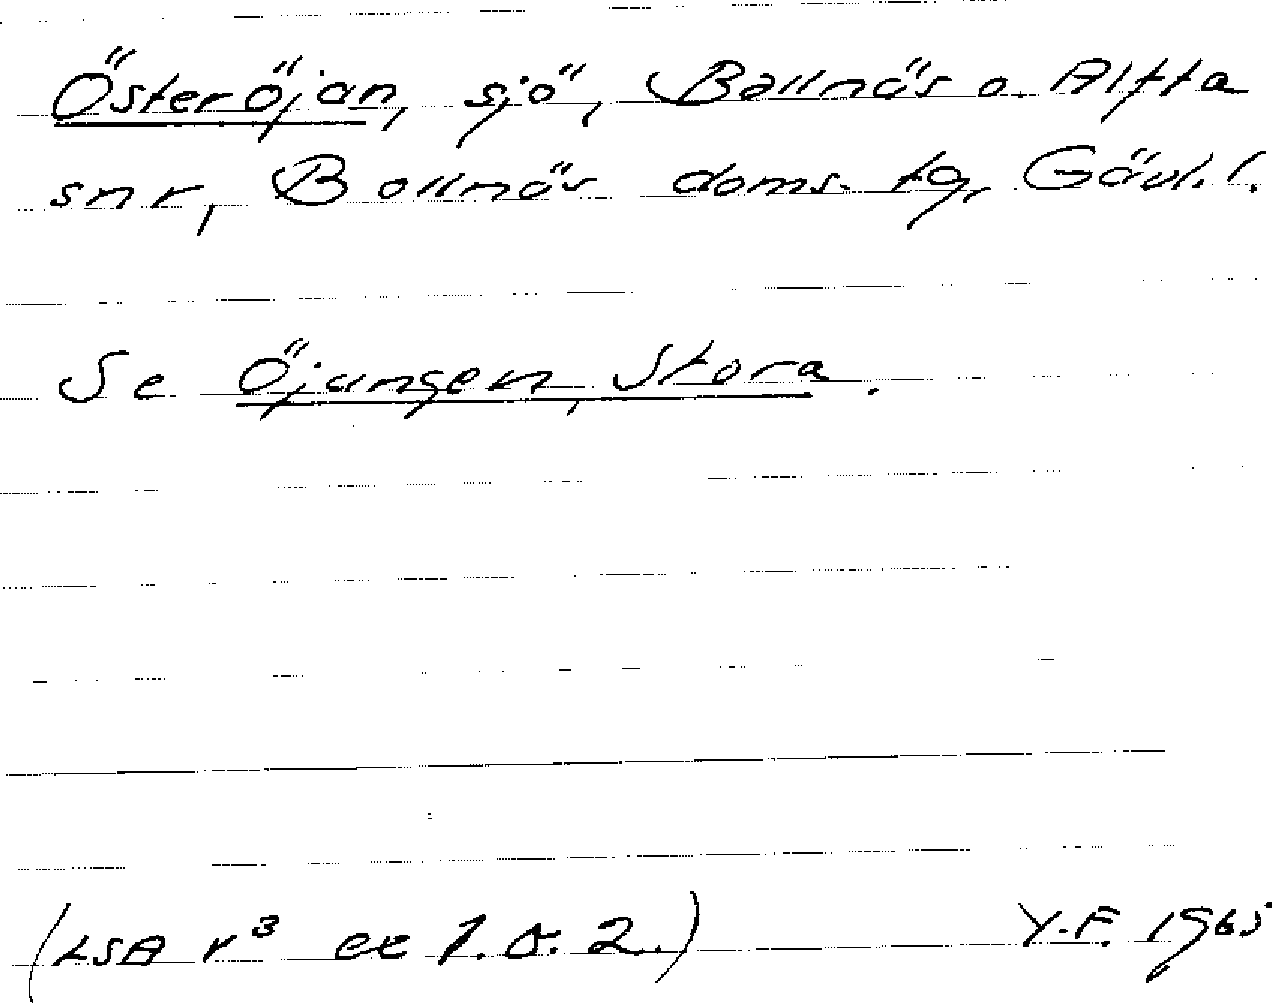 Österöjan, sjö, Bollnäs o. Alfta
snr, Bollnäs doms. tg, Gävl. l.
Se Öjungen, Stora.
(LSA r³ ee 1. o. 2.) Y.F. 1965